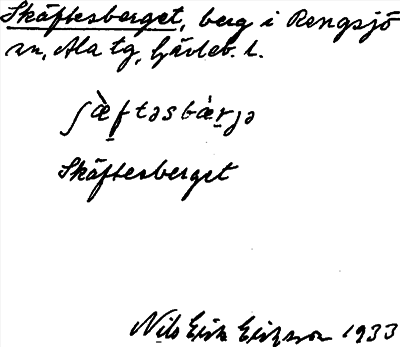 Skäftesberget, berg i Rengsjö
sn, Ala tg, Gävleb. l.
ʃæ̀ftəsbæ̀rjə
Skäftesberget
Nils Erik Ericsson 1933